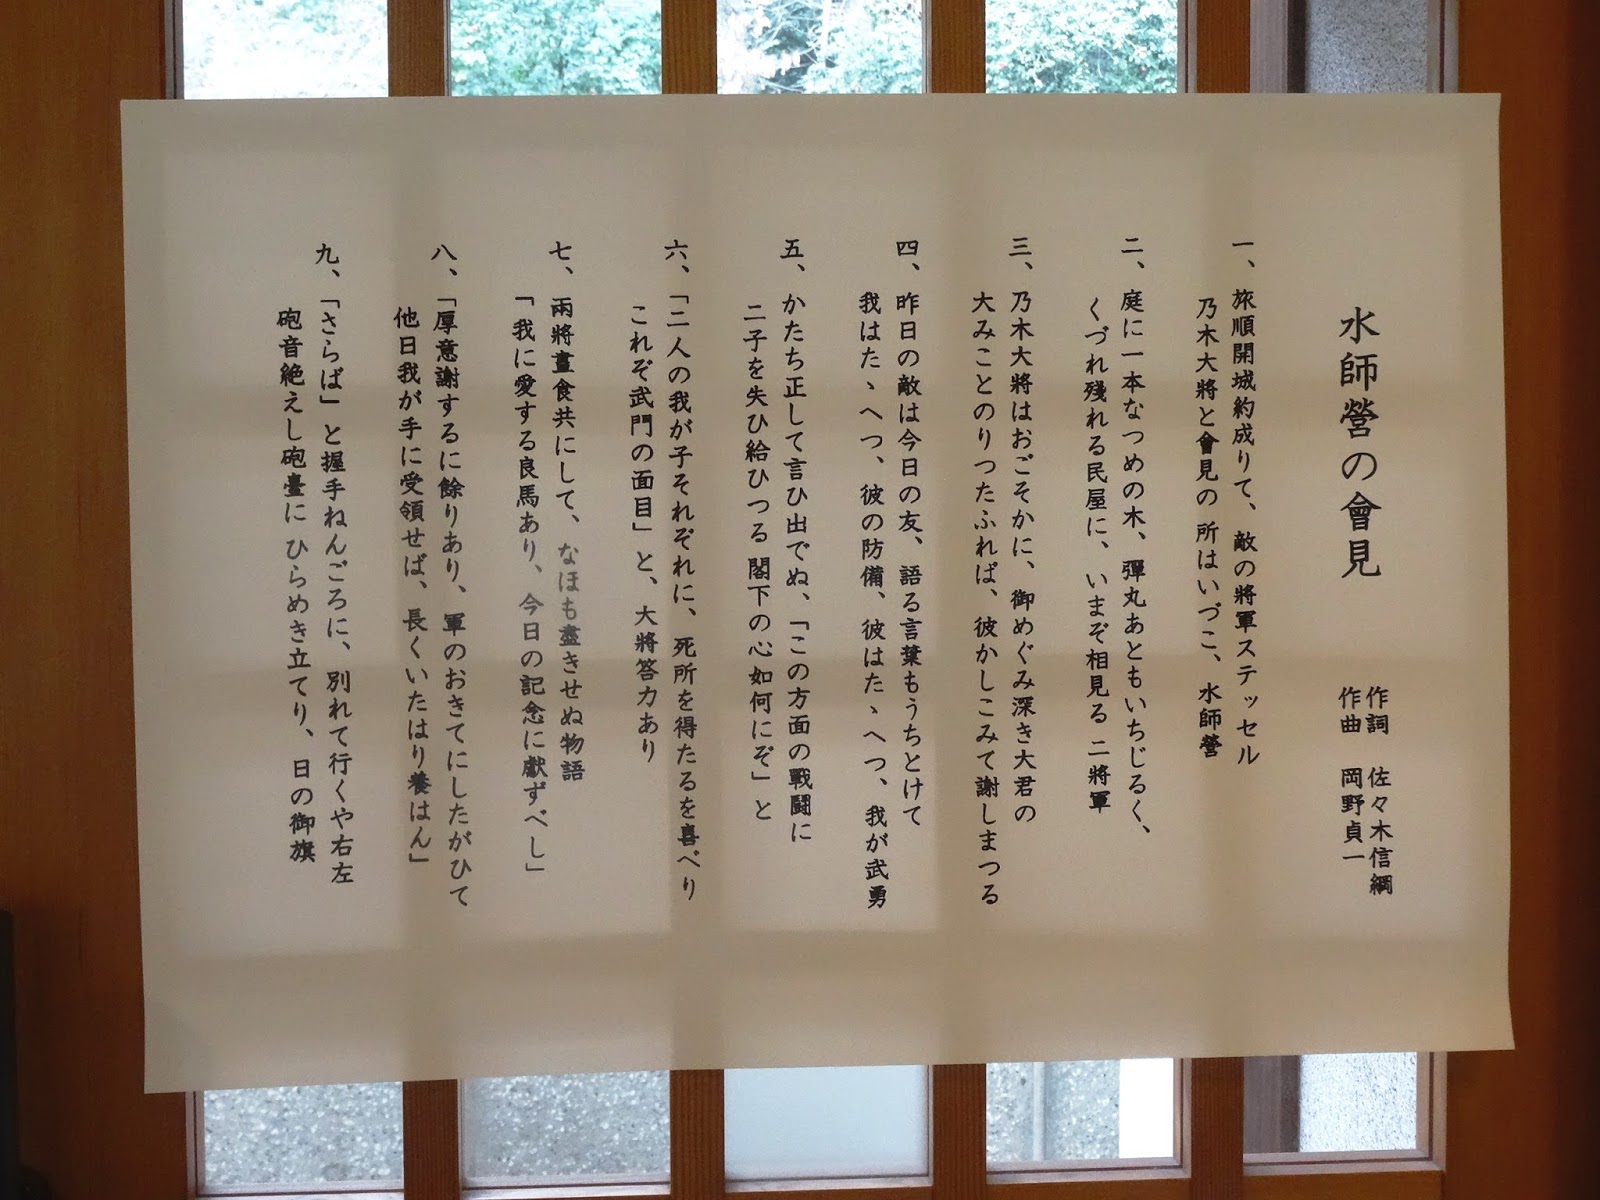 水師營の會見
作詞　佐々木信綱
作曲　岡野貞一
一、旅順開城約成りて、敵の將軍ステッセル
乃木大將と會見の 所はいづこ、水師營
二、庭に一本なつめの木、彈丸あともいちじるく、
くづれ殘れる民屋に、いまぞ相見る 二將軍
三、乃木大將はおごそかに、御めぐみ深き大君の
大みことのりつたふれば、彼かしこみて謝しまつる
四、昨日の敵は今日の友、語る言葉もうちとけて
我はたゝへつ、彼の防備、彼はたゝへつ、我が武勇
五、かたち正して言ひ出でぬ、「この方面の戰闘に
二子を失ひ給ひつる 閣下の心如何にぞ」と
六、「二人の我が子それぞれに、死所を得たるを喜べり
これぞ武門の面目」と、大將答力あり
七、兩將晝食共にして、なほも盡きせぬ物語
「我に愛する良馬あり、今日の記念に獻ずべし」
八、「厚意謝するに餘りあり、軍のおきてにしたがひて
他日我が手に受領せば、長くいたはり養はん」
九、「さらば」と握手ねんごろに、別れて行くや右左
砲音絶えし砲臺に ひらめき立てり、日の御旗